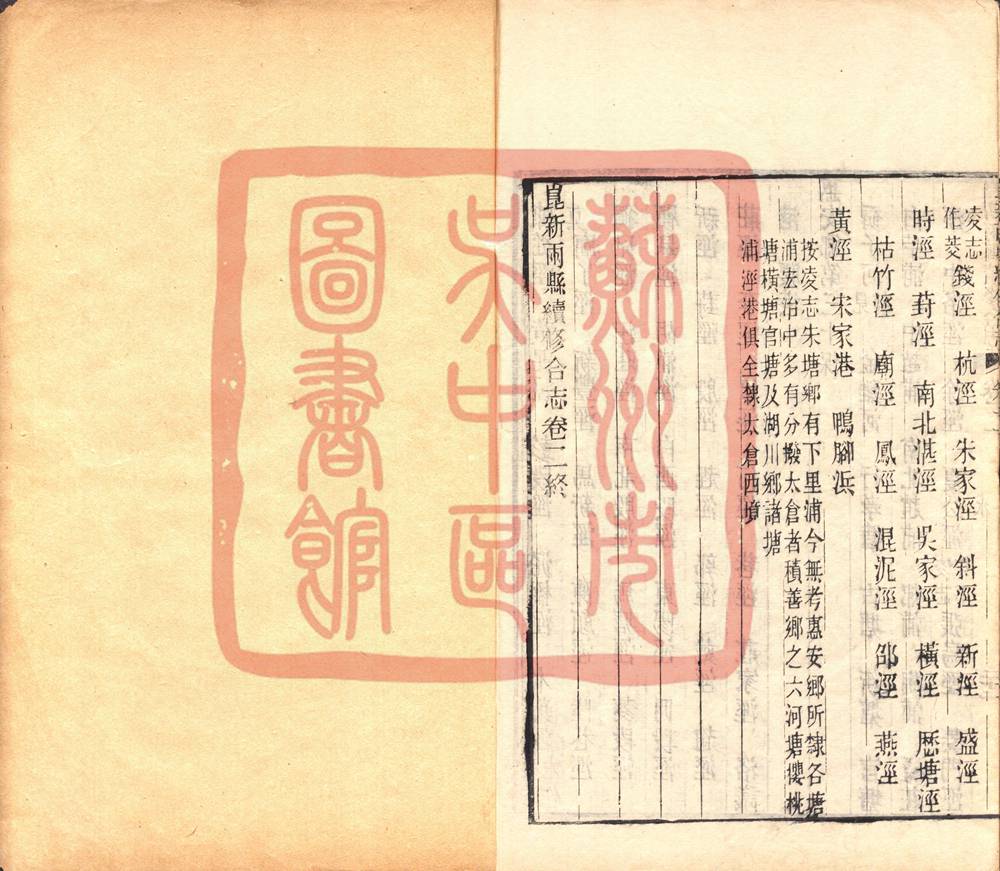 凌志作菱錢涇 杭涇 朱家涇 斜涇 新涇 盛涇
時涇 葑涇 南北湛涇 吳家涇 橫涇 歷塘涇
枯竹涇 廟涇 鳳涇 混泥涇 邵涇 燕涇
黃涇 宋家港 鴨腳浜
按凌志朱塘鄉有下里浦今無考惠安鄉所隸各塘
浦宏治中多有分撥太倉者積善鄉之六河塘櫻桃
塘橫塘官塘及湖川鄉諸塘
浦涇港俱全隸太倉西墳
崑新兩縣續修合志卷二終
蘇州市
吳中區
圖書館